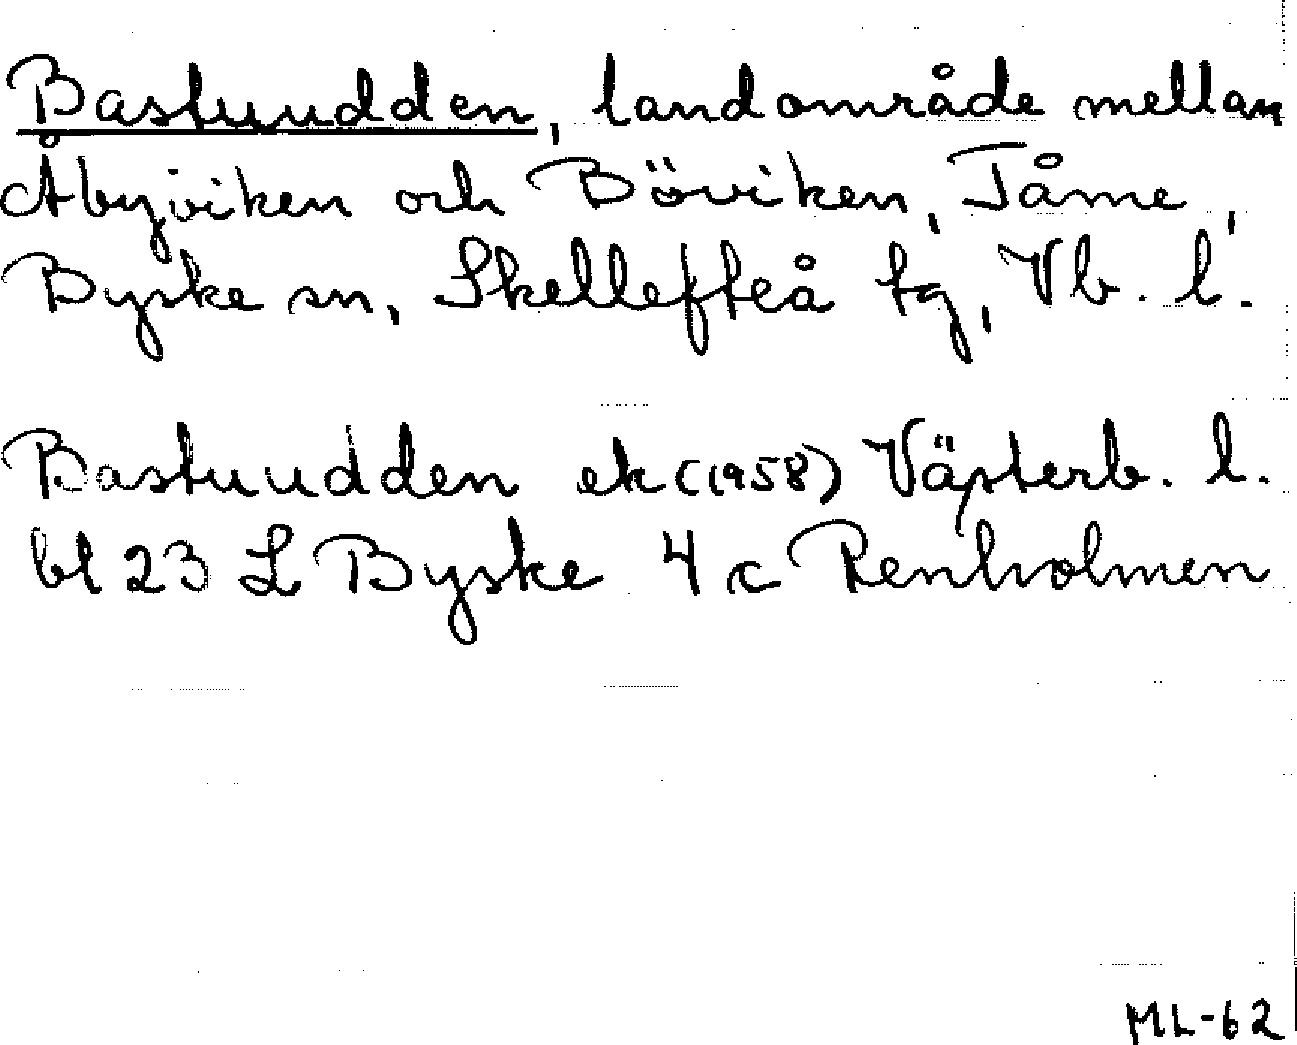 Bastuudden, landområde mellan
Åbyviken och Böviken, Tåme,
Byske sn, Skellefteå tg, Vb. l.
Bastuudden ek (1958) Västerb. l.
bl 23 L Byske 4 c Renholmen
ML-62